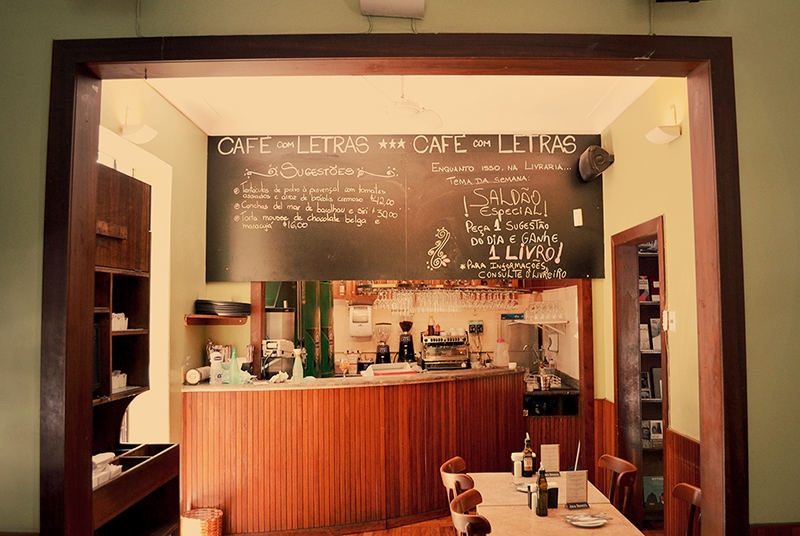 CAFÉ COM LETRAS *** CAFÉ COM LETRAS
SUGESTÕES
provençal com tomates
assados e arroz de brócolis cremoso $42,00
Conchas del mar de bacalhau e siri $39,00
Torta mousse de chocolate belga e
maracujá $16,00
ENQUANTO ISSO, NA LIVRARIA...
TEMA DA SEMANA:
SALDÃO
¡ESPECIAL!
PEÇA 1 SUGESTÃO
DO DIA E GANHE
1 LIVRO!
*PARA INFORMAÇÕES,
CONSULTE O LIVREIRO